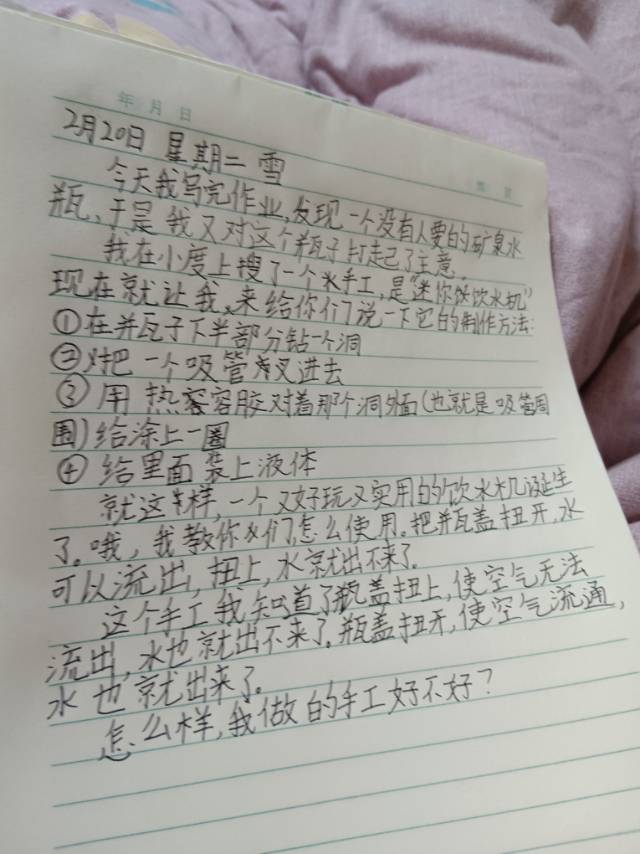 年 月 日
2月20日 星期二 雪
今天我写完作业,发现一个没有人要的矿泉水
瓶、于是我又对这个瓶子打起了主意。
我在小度上搜了一个手工,是"迷你饮水机"
现在就让我来给你们说一下它的制作方法:
①在瓶子下半部分钻一个洞
②把一个吸管插进去
③用热容胶对着那个洞外面(也就是吸管周
围)给涂上一圈
④给里面装上液体
就这样,一个又好玩又实用的饮水机诞生
了。哦,我教你们怎么使用。把瓶盖扭开,水
可以流出,扭上,水就出不来了。
这个手工我知道了瓶盖扭上,使空气无法
流出,水也就出不来了。瓶盖扭开,使空气流通,
水也就出来了。
怎么样,我做的手工好不好?